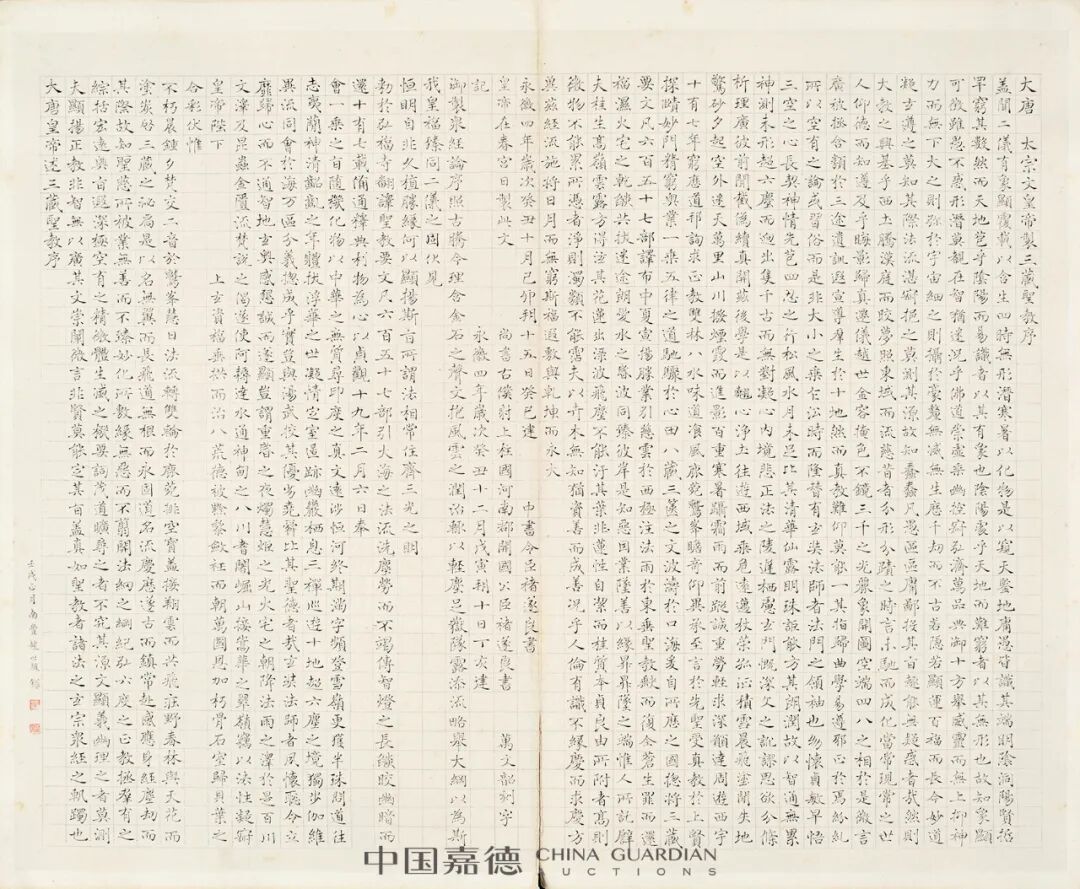 大唐　太宗文皇帝製三藏聖教序
盖聞二儀有象顯覆載以含生四時無形潛寒暑以化物是以窺天鑒地庸愚皆識其端明陰洞陽賢哲
罕窮其數然而天地苞乎陰陽而易識者以其有象也陰陽處乎天地而難窮者以其無形也故知象顯
可徵雖愚不惑形潛莫覩在智猶迷況乎佛道崇虛乘幽控寂弘濟萬品典御十方舉威靈而無上抑神
力而無下大之則弥於宇宙細之則攝於豪釐無滅無生歷千劫而不古若隱若顯運百福而長今妙道
凝玄遵之莫知其際法流湛寂挹之莫測其源故知蠢蠢凡愚區區庸鄙投其旨趣能無疑惑者哉然則
大教之興基乎西土騰漢庭而皎夢照東域而流慈昔者分形分蹟之時言未馳而成化當常現常之世
人仰德而知遵及乎晦影歸真遷儀越世金容掩色不鏡三千之光麗象開圖空端四八之相於是微言
廣被拯含類於三途遺訓遐宣導群生於十地然而真教難仰莫能一其指歸曲學易遵邪正於焉紛糺
所以空有之論或習俗而是非大小之乘乍沿時而隆替有玄奘法師者法門之領袖也幼懷貞敏早悟
三空之心長契神情先苞四忍之行松風水月未足比其清華仙露明珠詎能方其朗潤故以智通無累
神測未形超六塵而迥出隻千古而無對凝心內境悲正法之陵遲栖慮玄門慨深文之訛謬思欲分條
析理廣彼前聞截偽續真開茲後學是以翹心淨土往遊西域乘危遠邁杖策孤征積雪晨飛塗間失地
驚砂夕起空外迷天萬里山川撥煙霞而進影百重寒暑躡霜雨而前蹤誠重勞輕求深願達周遊西宇
十有七年窮歷道邦詢求正教雙林八水味道飡風鹿菀鷲峯瞻奇仰異承至言於先聖受真教於上賢
探賾妙門精窮奧業一乘五律之道馳驟於心田八藏三篋之文波濤於口海爰自所歷之國惣將三藏
要文凡六百五十七部譯布中夏宣揚勝業引慈雲於西極注法雨於東垂聖教缺而復全蒼生罪而還
福濕火宅之乾燄共拔迷途朗愛水之昏波同臻彼岸是知惡因業墜善以緣昇昇墜之端惟人所託譬
夫桂生高嶺雲露方得泫其花蓮出淥波飛塵不能汙其葉非蓮性自絜而桂質本貞良由所附者高則
微物不能累所憑者淨則濁類不能霑夫以卉木無知猶資善而成善況乎人倫有識不緣慶而求慶方
冀茲經流施將日月而無窮斯福遐敷與乾坤而永大
永徽四年歲次癸丑十月己卯朔十五日癸巳建　中書令臣褚遂良書
皇帝在春宮日製此文　尚書右僕射上柱國河南郡開國公臣褚遂良書　萬文韶刻字
記　永徽四年歲次癸丑十二月戊寅朔十日丁亥建
御製眾經論序照古騰今理含金石之聲文抱風雲之潤治輒以輕塵足嶽墜露添流略舉大綱以為斯
我皇福臻同二儀之固伏見
恒明自非久植勝緣何以顯揚斯旨所謂法相常住齊三光之明
勅於弘福寺翻譯聖教要文凡六百五十七部引大海之法流洗塵勞而不竭傳智燈之長燄皎幽暗而
還十有七載備通釋典利物為心以貞觀十九年二月六日奉
會一乘之旨隨機化物以中華之無質尋印度之真文遠涉恒河終期滿字頻登雪嶺更獲半珠問道往
志夷簡神清齠齔之年體拔浮華之世凝情定室匿跡幽巖栖息三禪巡遊十地超六塵之境獨步伽維
異流同會於海万區分義惣成乎實豈與湯武校其優劣堯舜比其聖德者哉玄奘法師者夙懷聰令立
靡歸心而不通智地玄奧感懇誠而遂顯豈謂重昏之夜燭慧炬之光火宅之朝降法雨之澤於是百川
文澤及昆蟲金匱流梵說之偈遂使阿耨達水通神甸之八川耆闍崛山接嵩華之翠嶺竊以法性凝寂
皇帝陛下　上玄資福垂拱而治八荒德被黔黎斂衽而朝萬國恩加朽骨石室歸貝葉之
合彩伏惟
不朽晨鍾夕梵交二音於鷲峯慧日法流轉雙輪於鹿菀排空寶蓋接翔雲而共飛莊野春林與天花而
塗炭啓三藏之秘扃是以名無翼而長飛道無根而永固道名流慶歷遂古而鎮常赴感應身經塵劫而
其際故知聖慈所被業無善而不臻妙化所敷緣無惡而不翦開法網之綱紀弘六度之正教拯群有之
綜括宏遠奧旨遐深極空有之精微體生滅之機要詞茂道曠尋之者不究其源文顯義幽理之者莫測
夫顯揚正教非智無以廣其文崇闡微言非賢莫能定其旨蓋真如聖教者諸法之玄宗眾經之軌躅也
大唐皇帝述三藏聖教序
壬戌六月南豐趙世駿臨
中国嘉德 CHINA GUARDIAN AUCTIONS